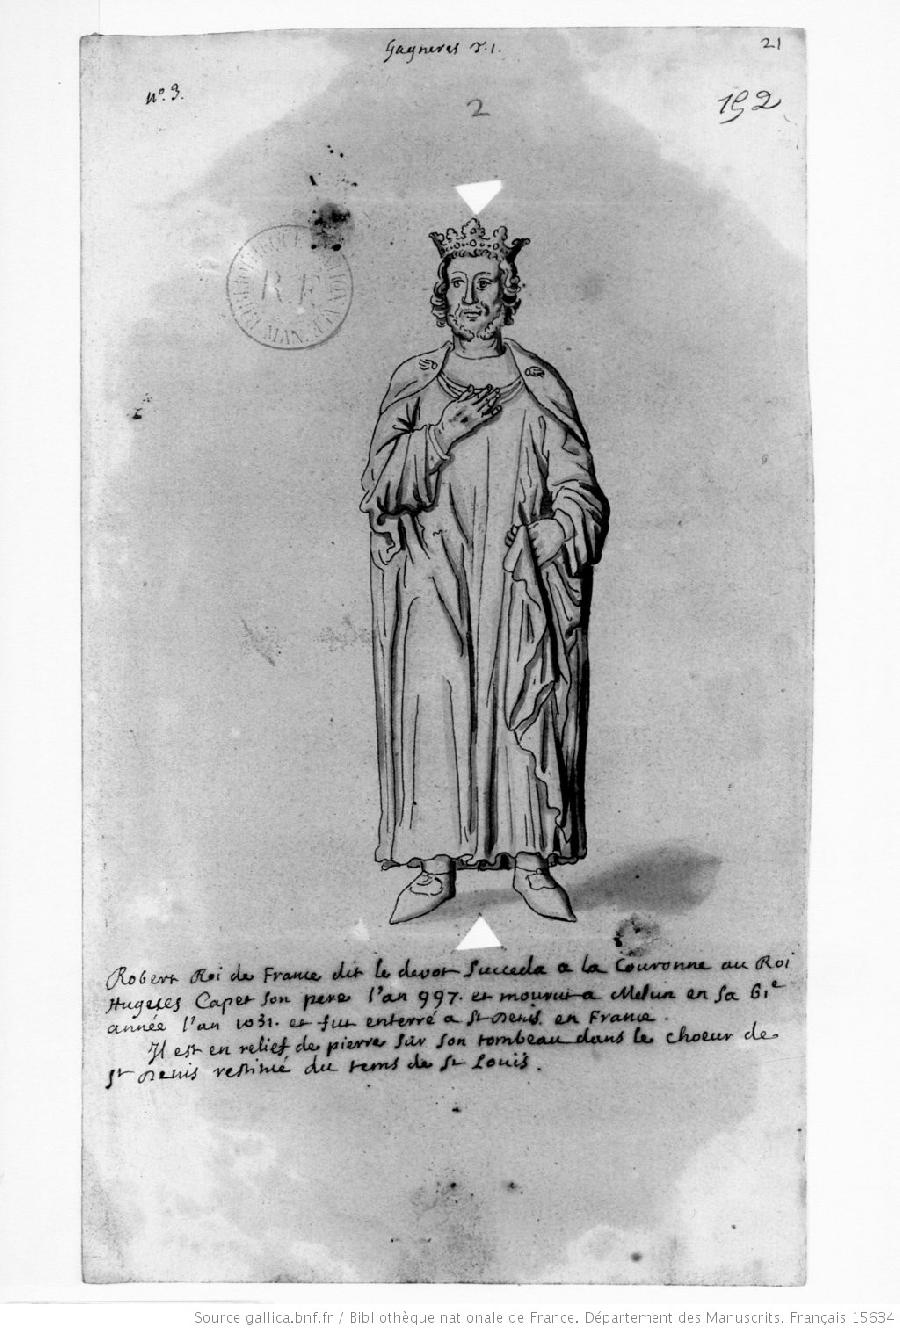 Gagneres T.1.
21
nº. 3.
2
192
R F
MAN
Robert Roi de France dit le devot Succeda a la Couronne au Roi
Hugues Capet son pere l'an 997. et mourut a Melun en sa 61e
année l'an 1031. et fut enterré a St Denis en France.
Il est en relief de pierre sur son tombeau dans le choeur de
St Denis restitué du tems de St Louis.
Source gallica.bnf.fr / Bibliothèque nationale de France. Département des Manuscrits. Français 15634